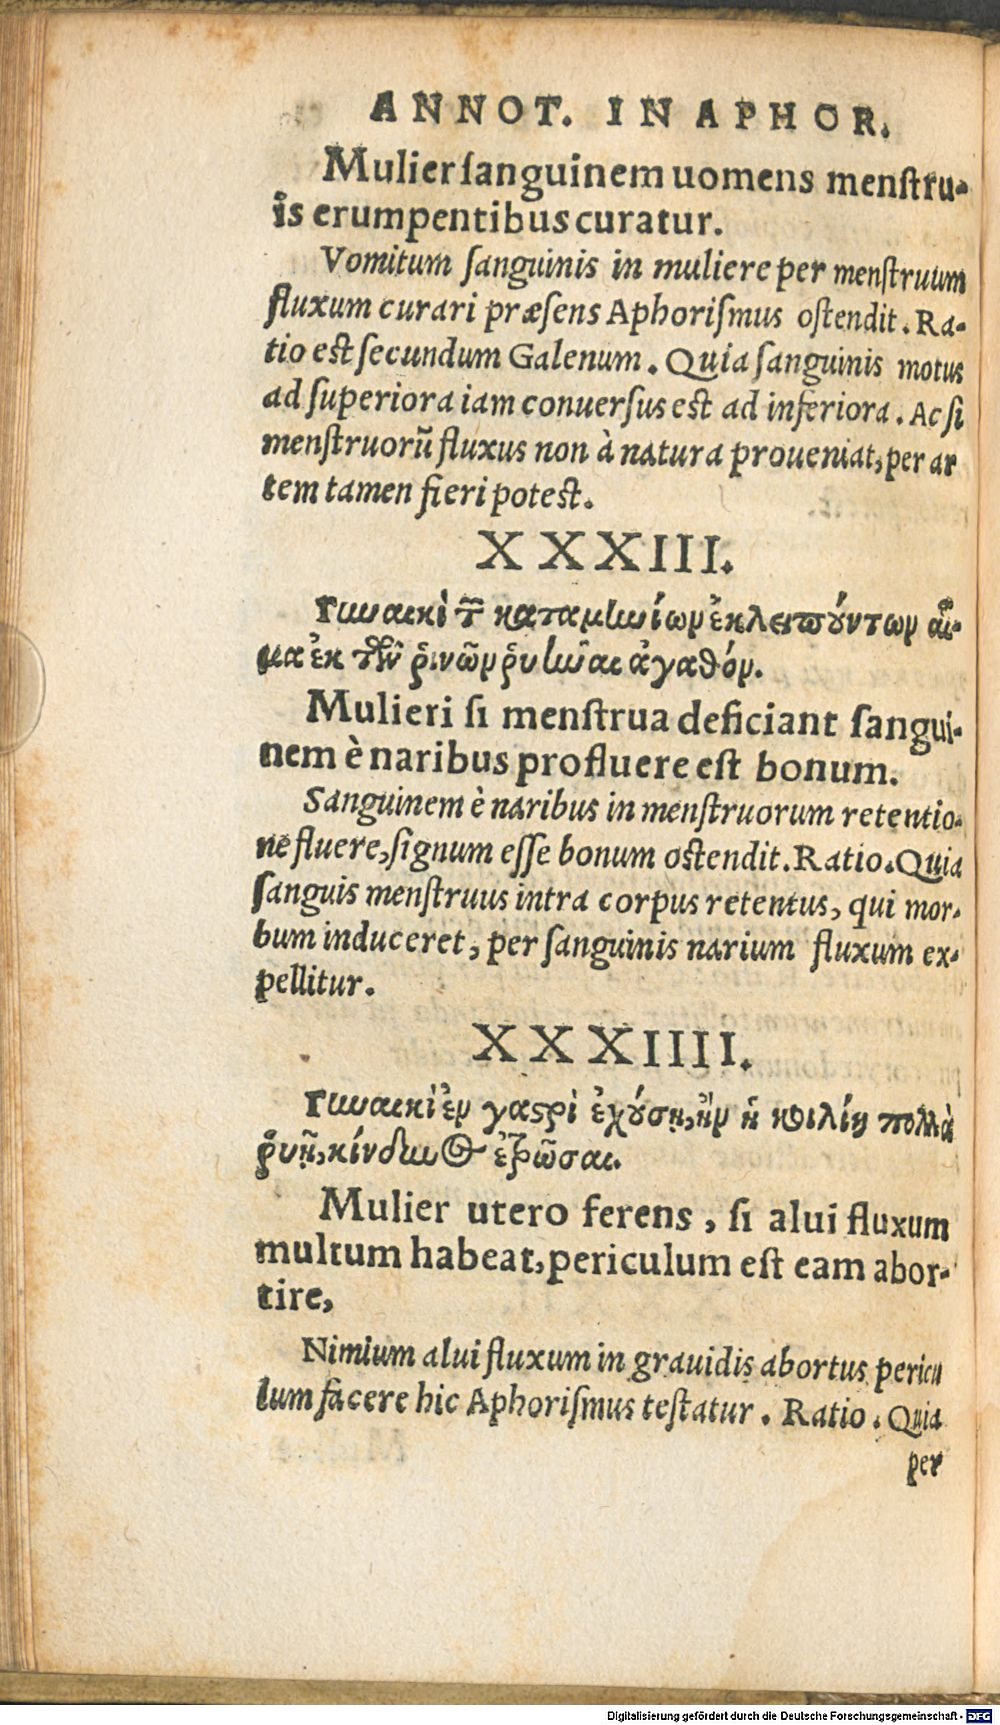 ANNOT. IN APHOR.
Mulier ſanguinem uomens menſtru-
is erumpentibus curatur.
Vomitum ſanguinis in muliere per menſtruum
fluxum curari præſens Aphoriſmus oſtendit. Ra-
tio eſt ſecundum Galenum. Quia ſanguinis motus
ad ſuperiora iam conuerſus eſt ad inferiora. Ac ſi
menſtruorũ fluxus non à natura proueniat, per ar
tem tamen fieri poteſt.
XXXIII.
Γυναικὶ τῶν καταμηνίων ἐκλειπόντων αἷ-
μα ἐκ τῶν ῥινῶν ῥυῆναι ἀγαθόν.
Mulieri ſi menſtrua deficiant ſangui-
nem è naribus profluere eſt bonum.
Sanguinem è naribus in menſtruorum retentio-
ne fluere, ſignum eſſe bonum oſtendit. Ratio. Quia
ſanguis menſtruus intra corpus retentus, qui mor-
bum induceret, per ſanguinis narium fluxum ex-
pellitur.
XXXIIII.
Γυναικὶ ἐν γαστρὶ ἐχούσῃ, ἢν ἡ κοιλίη πολλὰ
ῥυῇ, κίνδυνος ἐκτρῶσαι.
Mulier utero ferens, ſi alui fluxum
multum habeat, periculum eſt eam abor-
tire,
Nimium alui fluxum in grauidis abortus pericu
lum facere hic Aphoriſmus teſtatur. Ratio. Quia
per
Digitalisierung gefördert durch die Deutsche Forschungsgemeinschaft - DFG